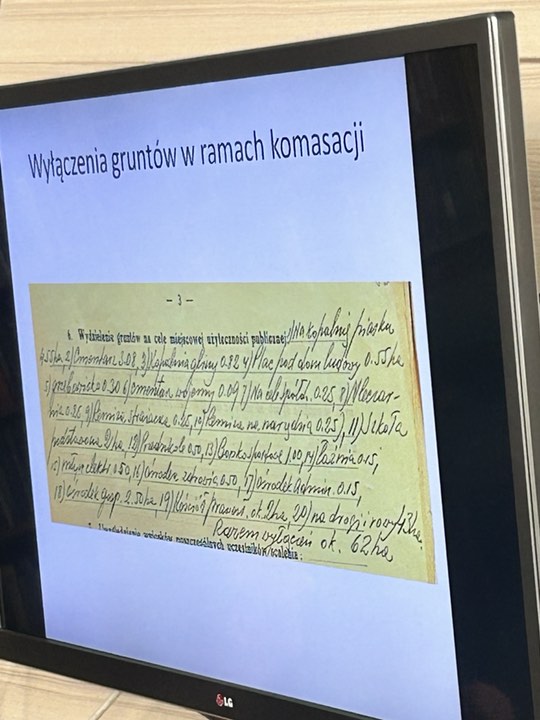 Wyłączenia gruntów w ramach komasacji
— 3 —
6. Wydzielenie gruntu na cele miejscowej użyteczności publicznej: 1) Na kopalnię piasku
4.55 ha, 2) Cmentarz 3.08, 3) Kopalnia gliny 0.82 4) Plac pod dom ludowy 0.55 ha
5) grzebowisko 0.30 6) Cmentarz wojenny 0.09 7) Na 0.25, 8) Mleczar-
nia 0.25, 9) Remiza strażacka 0.25, 10) Remiza na narzędzia 0.25), 11) Szkoła
2 ha, 12) Przedszkole 0.50, 13) 1.00, 14) Łaźnia 0.15,
15) młyn elektr. 0.50, 16) Ośrodek zdrowia 0.50, 17) Ośrodek Admin. 0.15,
18) Ośrodek gosp. 2.50 ha, 19) Kościół prawosł. ok. 2 ha, 20) na drogi rowy
Razem wyłączeń ok. 62 ha
7. Uwzględnienie wniosków poszczególnych uczestników scalenia:
LG